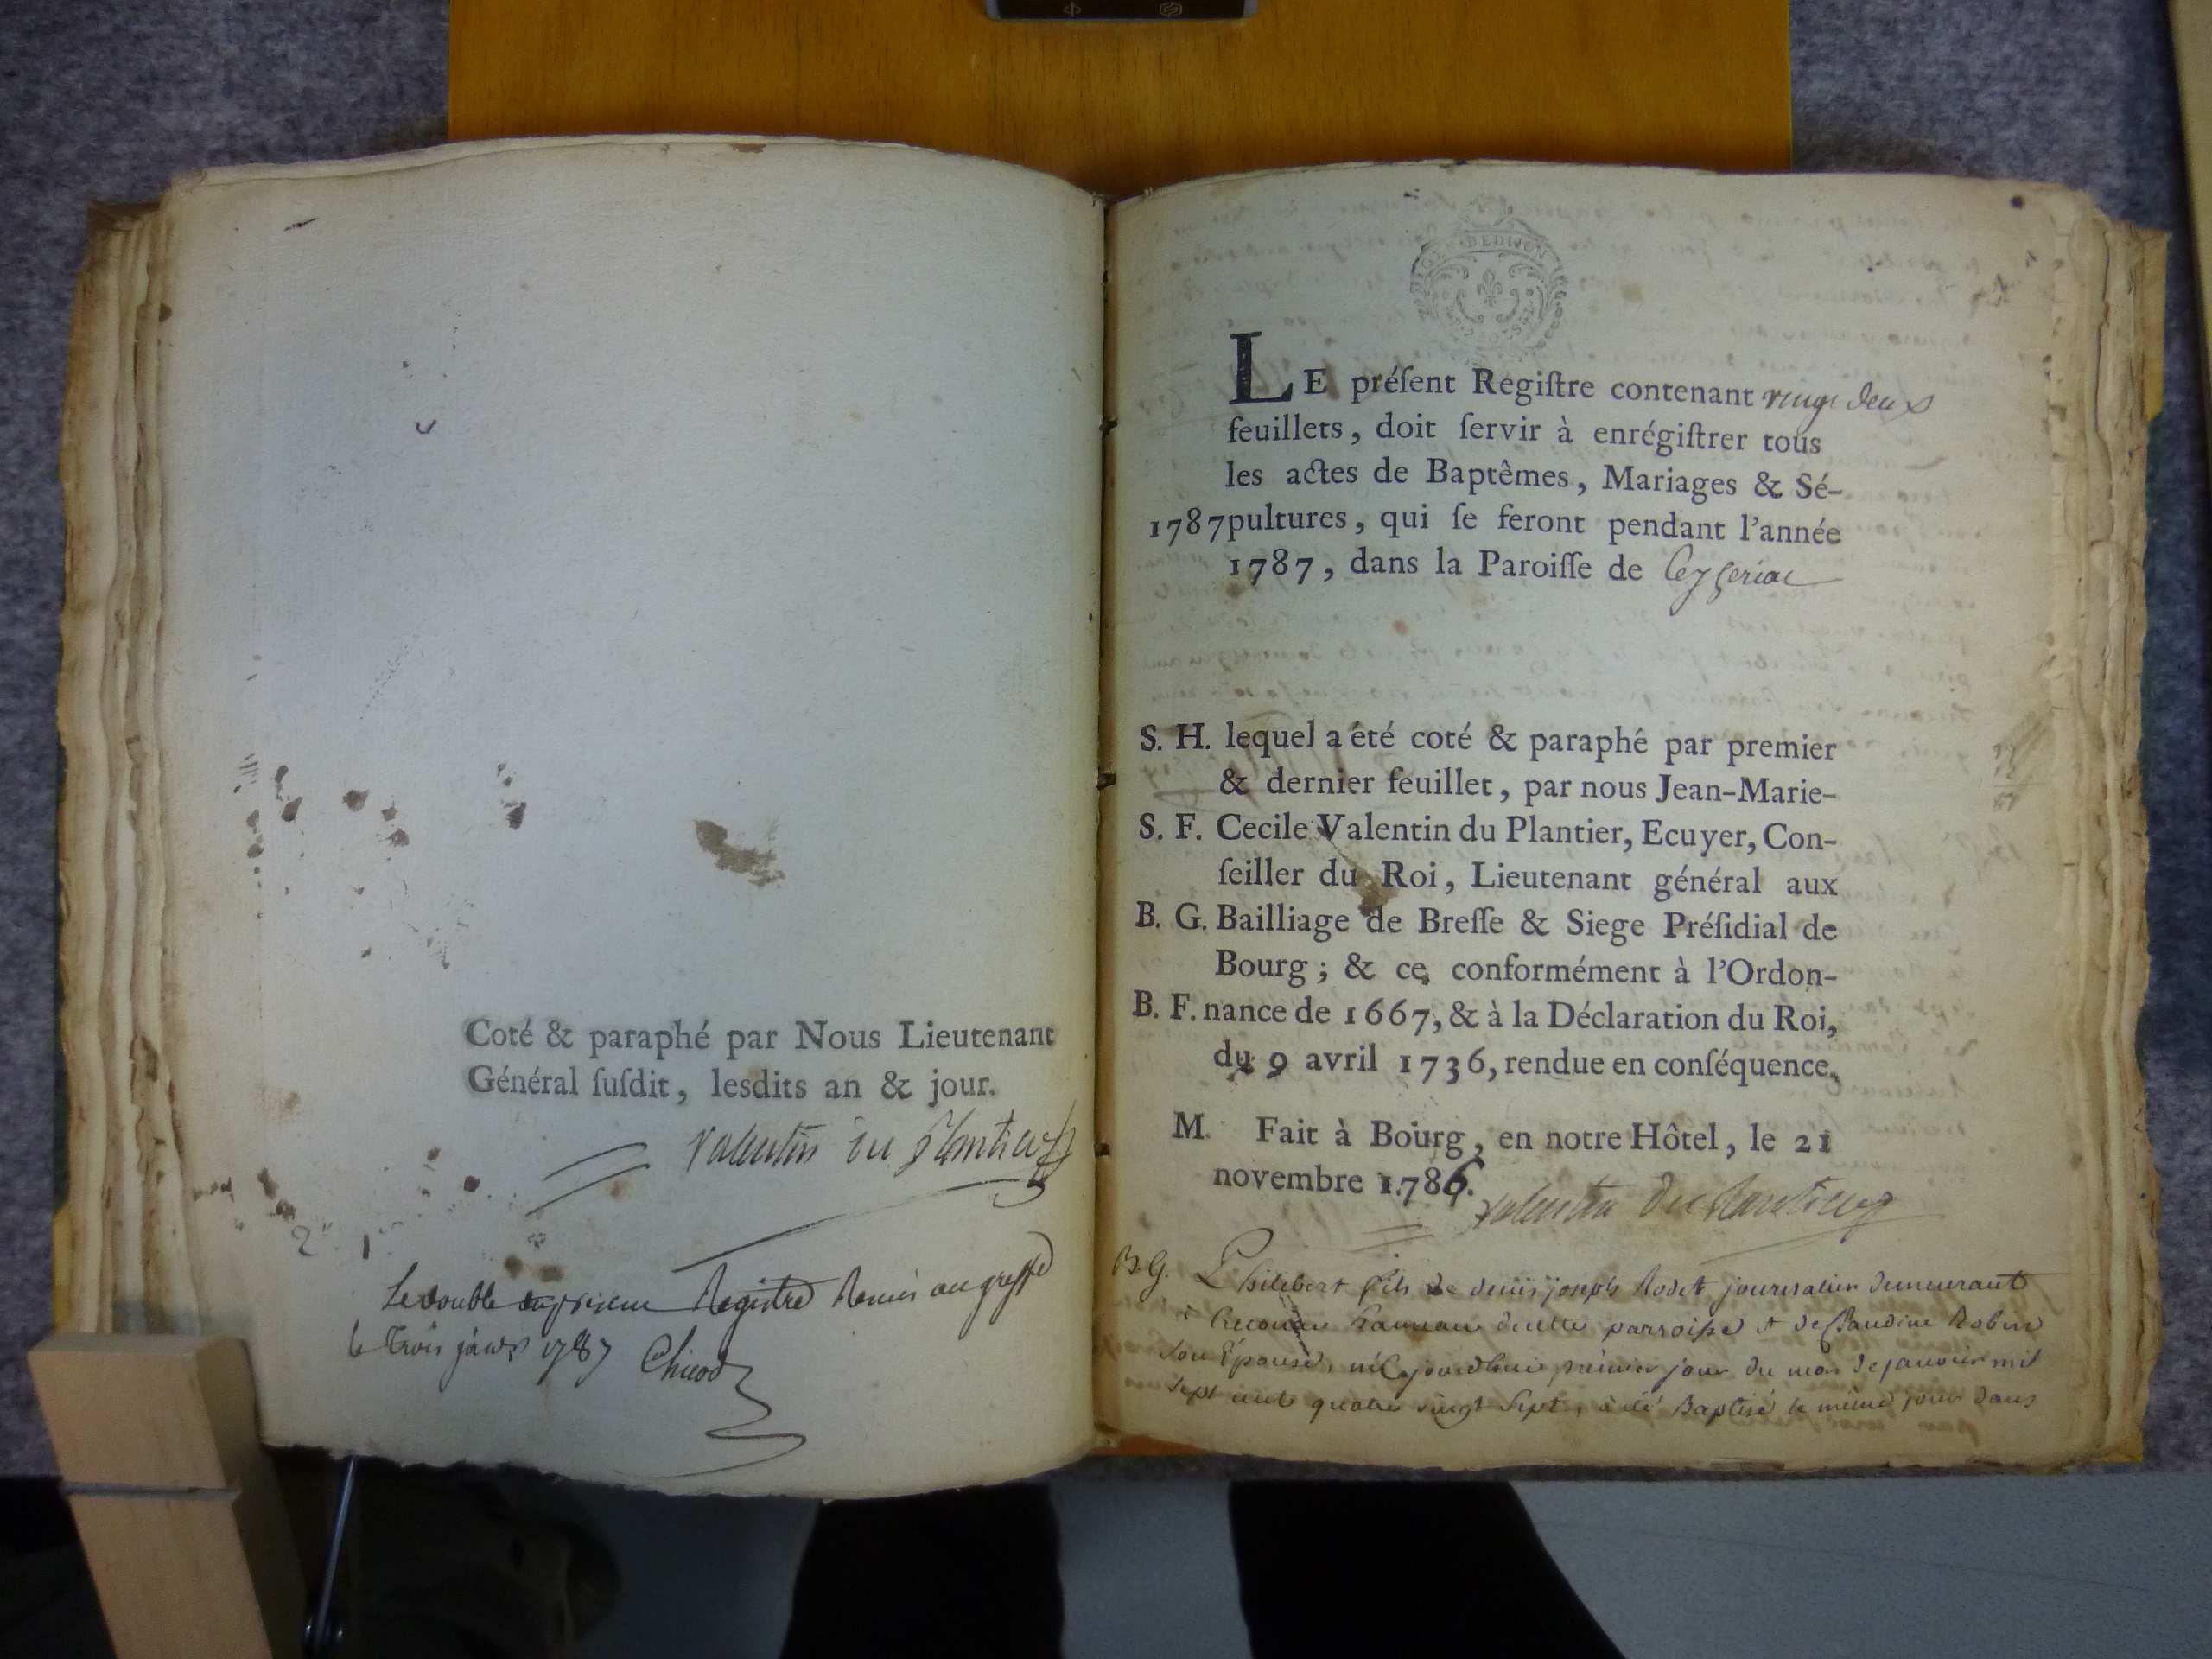 Coté & paraphé par Nous Lieutenant
Général ſuſdit, lesdits an & jour.
Valentin du Plantier
Le double du preſent Registre Remis au greffe
le Trois janvr 1787 Chicod
DE DIJON
LE préſent Regiſtre contenant vingt deux
feuillets, doit ſervir à enrégiſtrer tous
les actes de Baptêmes, Mariages & Sé-
1787 pultures, qui ſe feront pendant l'année
1787, dans la Paroiſſe de Ceyzeriat
S. H. lequel a été coté & paraphé par premier
& dernier feuillet, par nous Jean-Marie-
S. F. Cecile Valentin du Plantier, Ecuyer, Con-
ſeiller du Roi, Lieutenant général aux
B. G. Bailliage de Breſſe & Siege Préſidial de
Bourg ; & ce conformément à l'Ordon-
B. F. nance de 1667, & à la Déclaration du Roi,
du 9 avril 1736, rendue en conſéquence.
M. Fait à Bourg, en notre Hôtel, le 21
novembre 1786.
Valentin du Plantier
B. G. Philibert fils de denis joseph Rodet journalier demeurant
à hameau de cette parroisse et de Claudine Robin
Son Épouse, né jourdhuy premier jour du mois de janvier mil
Sept cent quatre vingt Sept, a été Baptisé le même jour dans